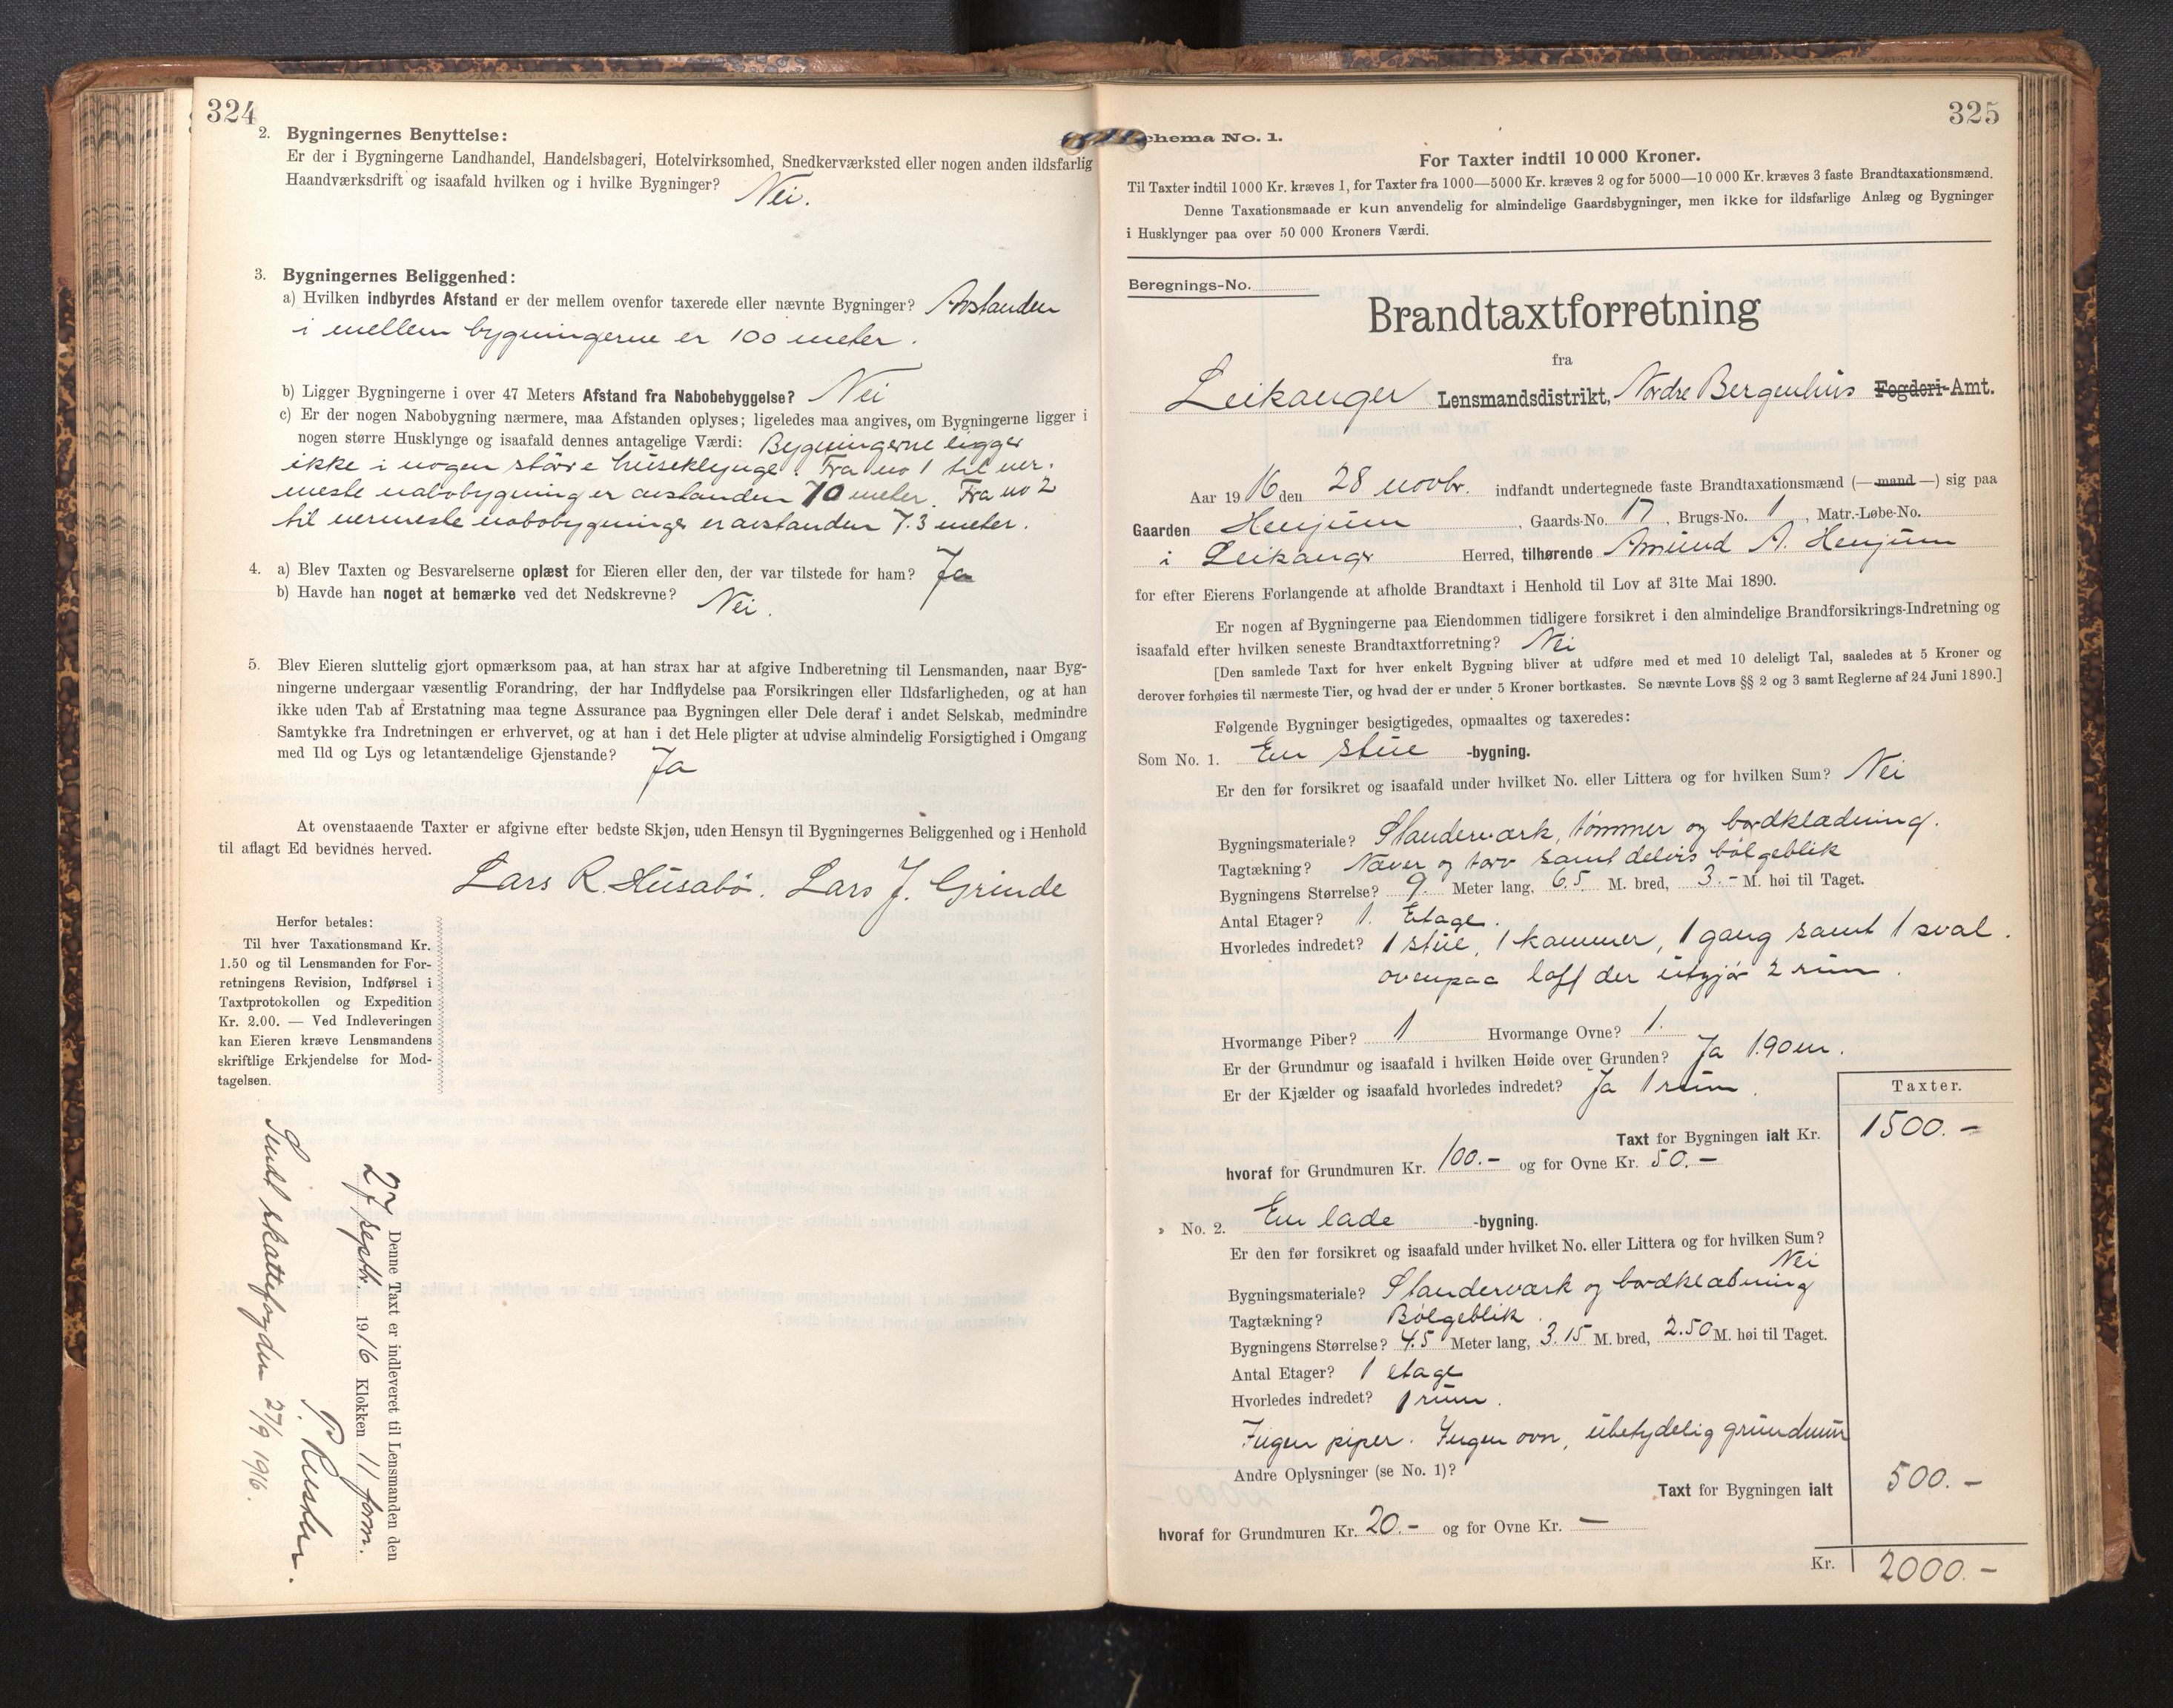 324
2. Bygningernes Benyttelse:
Er der i Bygningerne Landhandel, Handelsbageri, Hotelvirksomhed, Snedkerværksted eller nogen anden ildsfarlig
Haandværksdrift og isaafald hvilken og i hvilke Bygninger? Nei.
3. Bygningernes Beliggenhed:
a) Hvilken indbyrdes Afstand er der mellem ovenfor taxerede eller nævnte Bygninger? Avstanden
i mellem bygningerne er 100 meter.
b) Ligger Bygningerne i over 47 Meters Afstand fra Nabobebyggelse? Nei
c) Er der nogen Nabobygning nærmere, maa Afstanden oplyses; ligeledes maa angives, om Bygningerne ligger i
nogen større Husklynge og isaafald dennes antagelige Værdi: Bygningerne ligger
ikke i nogen større huseklynge. Fra no 1 til ner.
meste nabobygning er avstanden 70 meter. Fra no 2
til nermeste nabobygninge er avstanden 7.3 meter.
4. a) Blev Taxten og Besvarelserne oplæst for Eieren eller den, der var tilstede for ham? Ja
b) Havde han noget at bemærke ved det Nedskrevne? Nei.
5. Blev Eieren sluttelig gjort opmærksom paa, at han strax har at afgive Indberetning til Lensmanden, naar Byg-
ningerne undergaar væsentlig Forandring, der har Indflydelse paa Forsikringen eller Ildsfarligheden, og at han
ikke uden Tab af Erstatning maa tegne Assurance paa Bygningen eller Dele deraf i andet Selskab, medmindre
Samtykke fra Indretningen er erhvervet, og at han i det Hele pligter at udvise almindelig Forsigtighed i Omgang
med Ild og Lys og letantændelige Gjenstande? Ja
At ovenstaaende Taxter er afgivne efter bedste Skjøn, uden Hensyn til Bygningernes Beliggenhed og i Henhold
til aflagt Ed bevidnes herved.
Lars R. Husabø. Lars J. Grinde
Herfor betales:
Til hver Taxationsmand Kr.
1.50 og til Lensmanden for For-
retningens Revision, Indførsel i
Taxtprotokollen og Expedition
Kr. 2.00. — Ved Indleveringen
kan Eieren kræve Lensmandens
skriftlige Erkjendelse for Mod-
tagelsen.
Denne Taxt er indleveret til Lensmanden den
27 septbr. 1916 Klokken 11 form.
Sendt skattefogden 27/9 1916.
325
chema No. 1.
For Taxter indtil 10 000 Kroner.
Til Taxter indtil 1000 Kr. kræves 1, for Taxter fra 1000—5000 Kr. kræves 2 og for 5000—10 000 Kr. kræves 3 faste Brandtaxationsmænd.
Denne Taxationsmaade er kun anvendelig for almindelige Gaardsbygninger, men ikke for ildsfarlige Anlæg og Bygninger
i Husklynger paa over 50 000 Kroners Værdi.
Beregnings-No.
Brandtaxtforretning
fra
Leikanger Lensmandsdistrikt, Nordre Bergenhus Fogderi-Amt.
Aar 1916 den 28 novbr. indfandt undertegnede faste Brandtaxationsmænd (—mand—) sig paa
Gaarden Henjum, Gaards-No. 17, Brugs-No. 1, Matr.-Løbe-No.
i Leikangr Herred, tilhørende Amund A. Henjum
for efter Eierens Forlangende at afholde Brandtaxt i Henhold til Lov af 31te Mai 1890.
Er nogen af Bygningerne paa Eiendommen tidligere forsikret i den almindelige Brandforsikrings-Indretning og
isaafald efter hvilken seneste Brandtaxtforretning? Nei
[Den samlede Taxt for hver enkelt Bygning bliver at udføre med et med 10 deleligt Tal, saaledes at 5 Kroner og
derover forhøies til nærmeste Tier, og hvad der er under 5 Kroner bortkastes. Se nævnte Lovs §§ 2 og 3 samt Reglerne af 24 Juni 1890.]
Følgende Bygninger besigtigedes, opmaaltes og taxeredes:
Som No. 1. En stue -bygning.
Er den før forsikret og isaafald under hvilket No. eller Littera og for hvilken Sum? Nei
Bygningsmateriale? Standerværk, tømmer og bordklædning.
Tagtækning? Næver og torv samt delvis bølgeblik
Bygningens Størrelse? 9. Meter lang, 6.5 M. bred, 3.- M. høi til Taget.
Antal Etager? 1. Etage.
Hvorledes indredet? 1 stue, 1 kammer, 1 gang samt 1 sval.
ovenpaa loft der utgjør 2 rum.
Hvormange Piber? 1 Hvormange Ovne? 1.
Er der Grundmur og isaafald i hvilken Høide over Grunden? Ja 1.90 m.
Er der Kjælder og isaafald hvorledes indredet? Ja 1 rum.
Taxter.
Taxt for Bygningen ialt Kr. 1500.-
hvoraf for Grundmuren Kr. 100.- og for Ovne Kr. 50.-
» No. 2. En lade -bygning.
Er den før forsikret og isaafald under hvilket No. eller Littera og for hvilken Sum?
Nei
Bygningsmateriale? Standerværk og bordklædning
Tagtækning? Bølgeblik.
Bygningens Størrelse? 4.5 Meter lang, 3.15 M. bred, 2.50 M. høi til Taget.
Antal Etager? 1 etage
Hvorledes indredet? 1 rum.
Ingen piper. Ingen ovn, ubetydelig grundmur
Andre Oplysninger (se No. 1)?
Taxt for Bygningen ialt 500.-
hvoraf for Grundmuren Kr. 20.- og for Ovne Kr. —
Kr. 2000.-